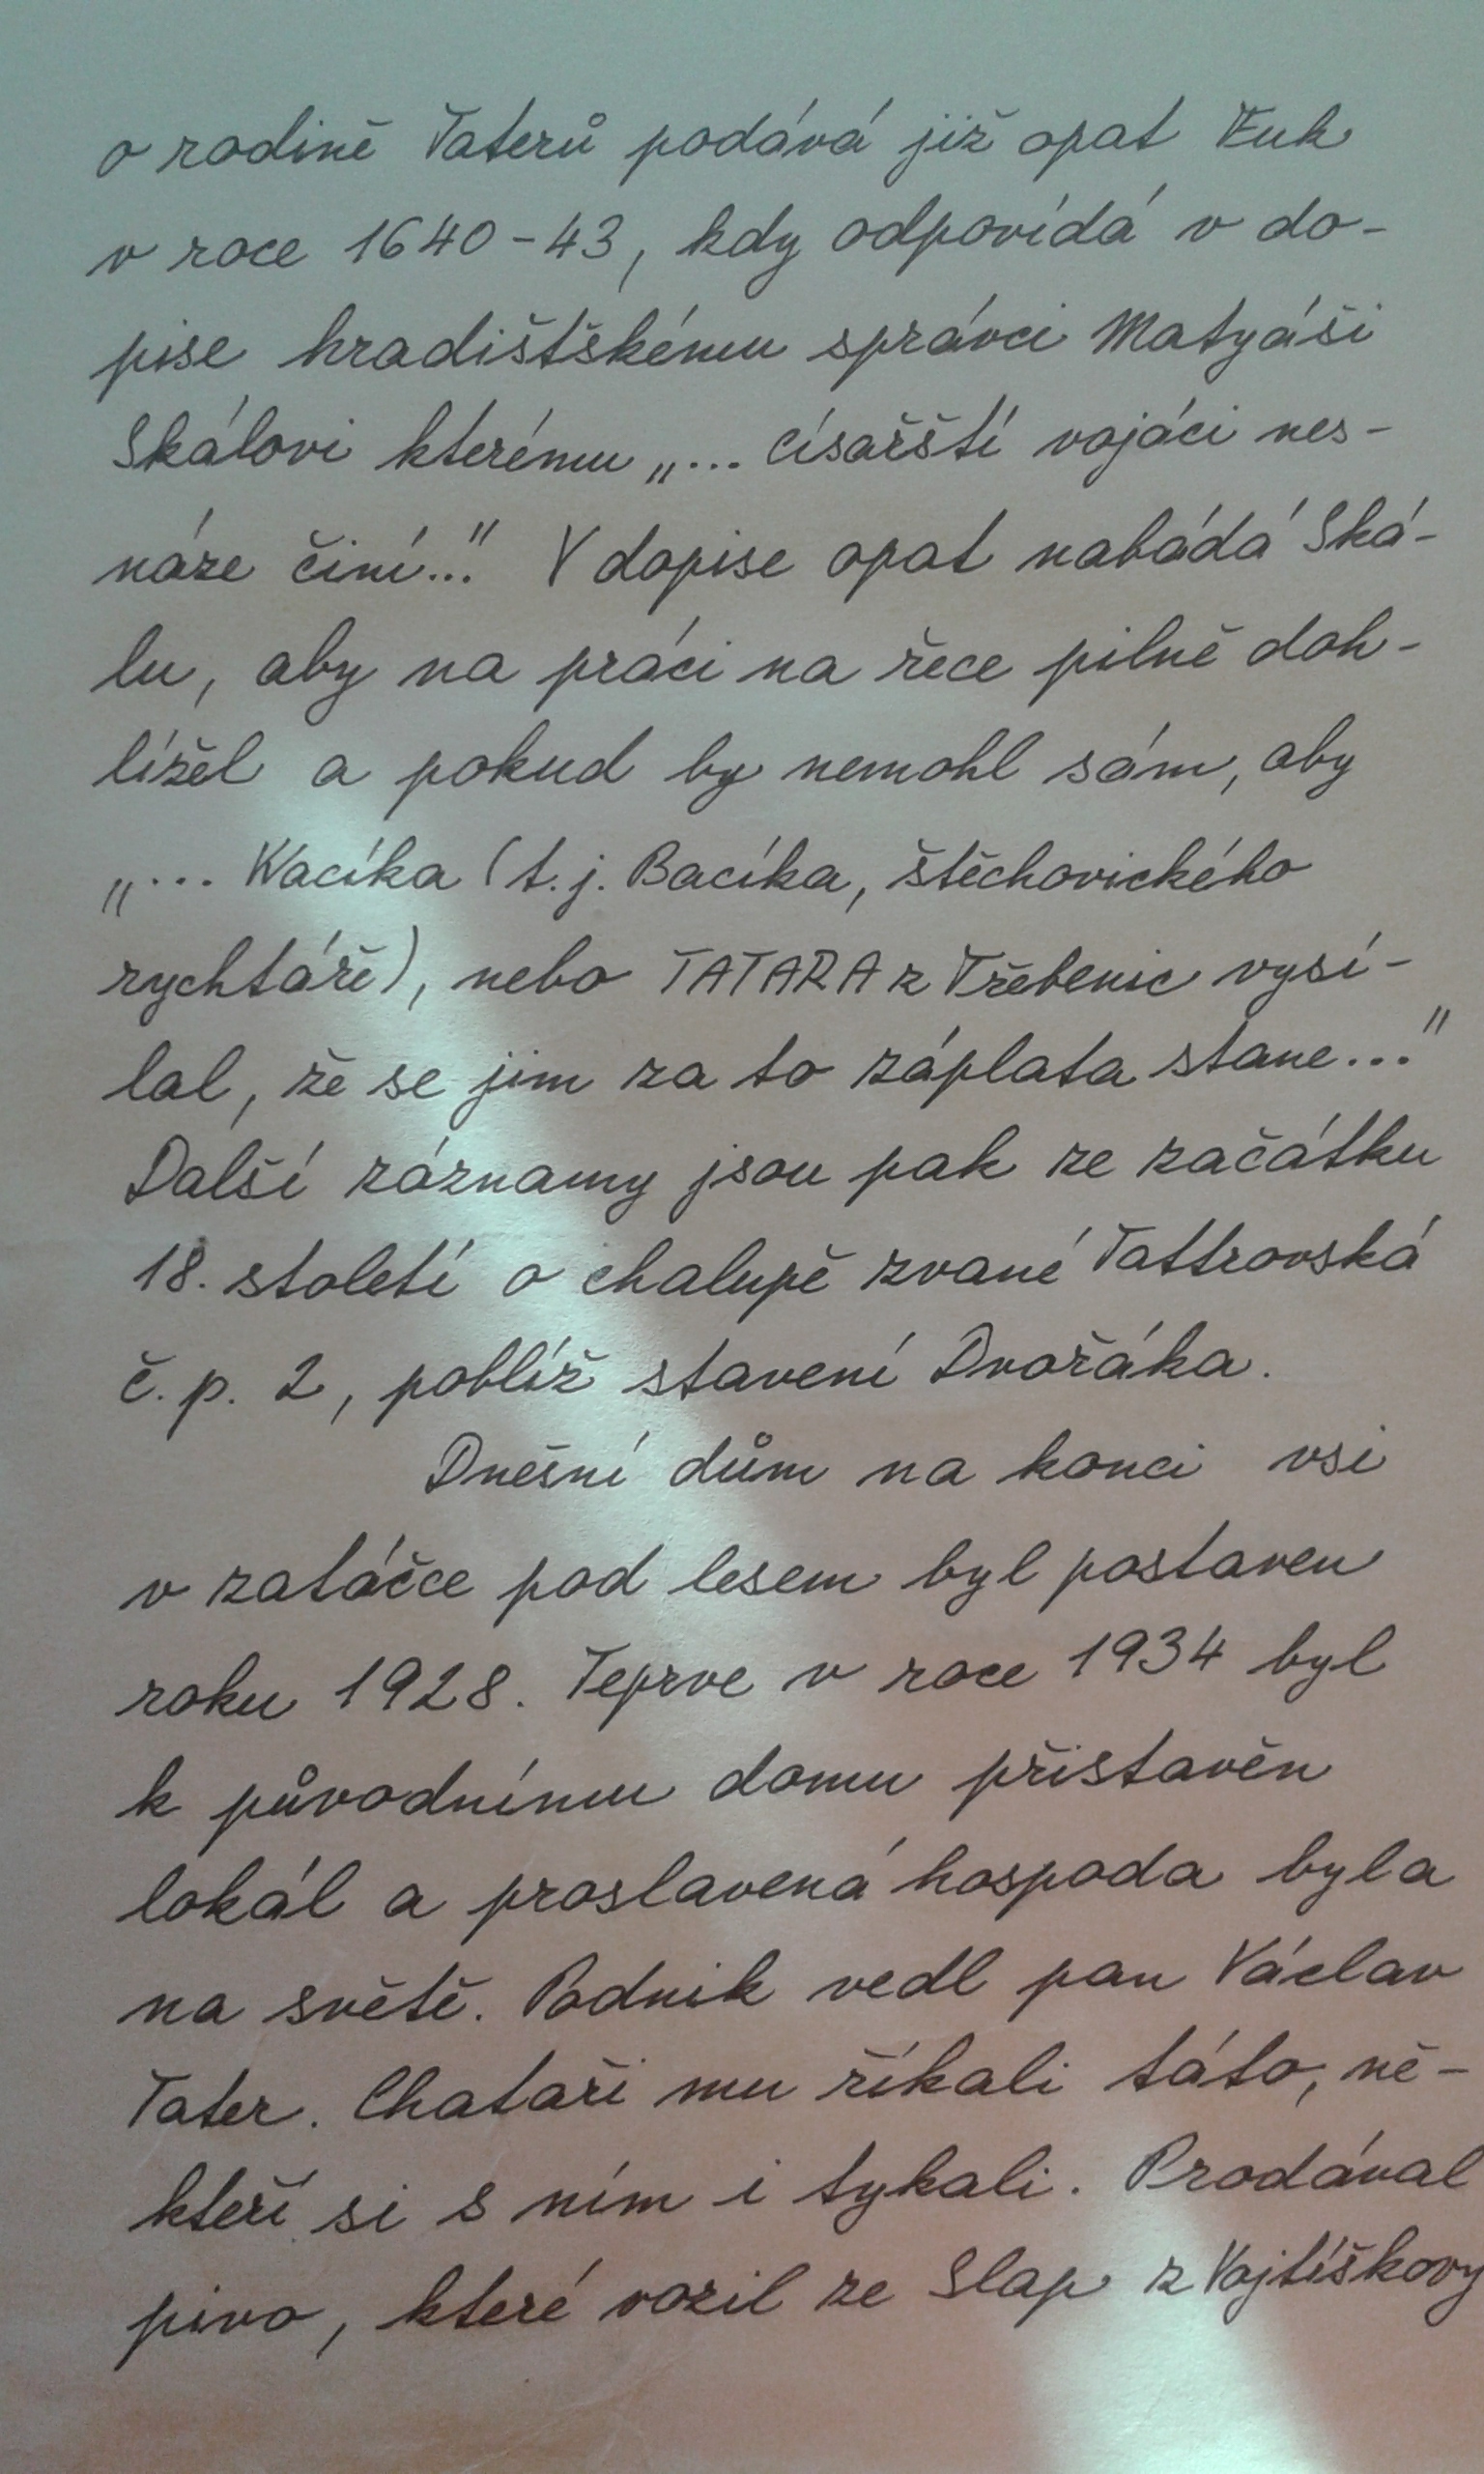 o rodině Taterů podává již opat Fuk
v roce 1640-43, kdy odpovídá v do-
pise hradištškému správci Matyáši
Skálovi kterému „... císařští vojáci nes-
náze činí..." V dopise opat nabádá Ská-
lu, aby na práci na řece pilně doh-
lížel a pokud by nemohl sám, aby
„... Wacíka (t.j. Bacíka, štěchovického
rychtáře), nebo TATARA z Třebenic vysí-
lal, že se jim za to záplata stane..."
Další záznamy jsou pak ze začátku
18. století o chalupě zvané Tattrovská
č.p. 2, poblíž stavení Dvořáka.
Dnešní dům na konci vsi
v zatáčce pod lesem byl postaven
roku 1928. Teprve v roce 1934 byl
k původnímu domu přistavěn
lokál a proslavená hospoda byla
na světě. Podnik vedl pan Václav
Tater. Chataři mu říkali táto, ně-
kteří si s ním i tykali. Prodával
pivo, které vozil ze Slap z Vojtíškovy